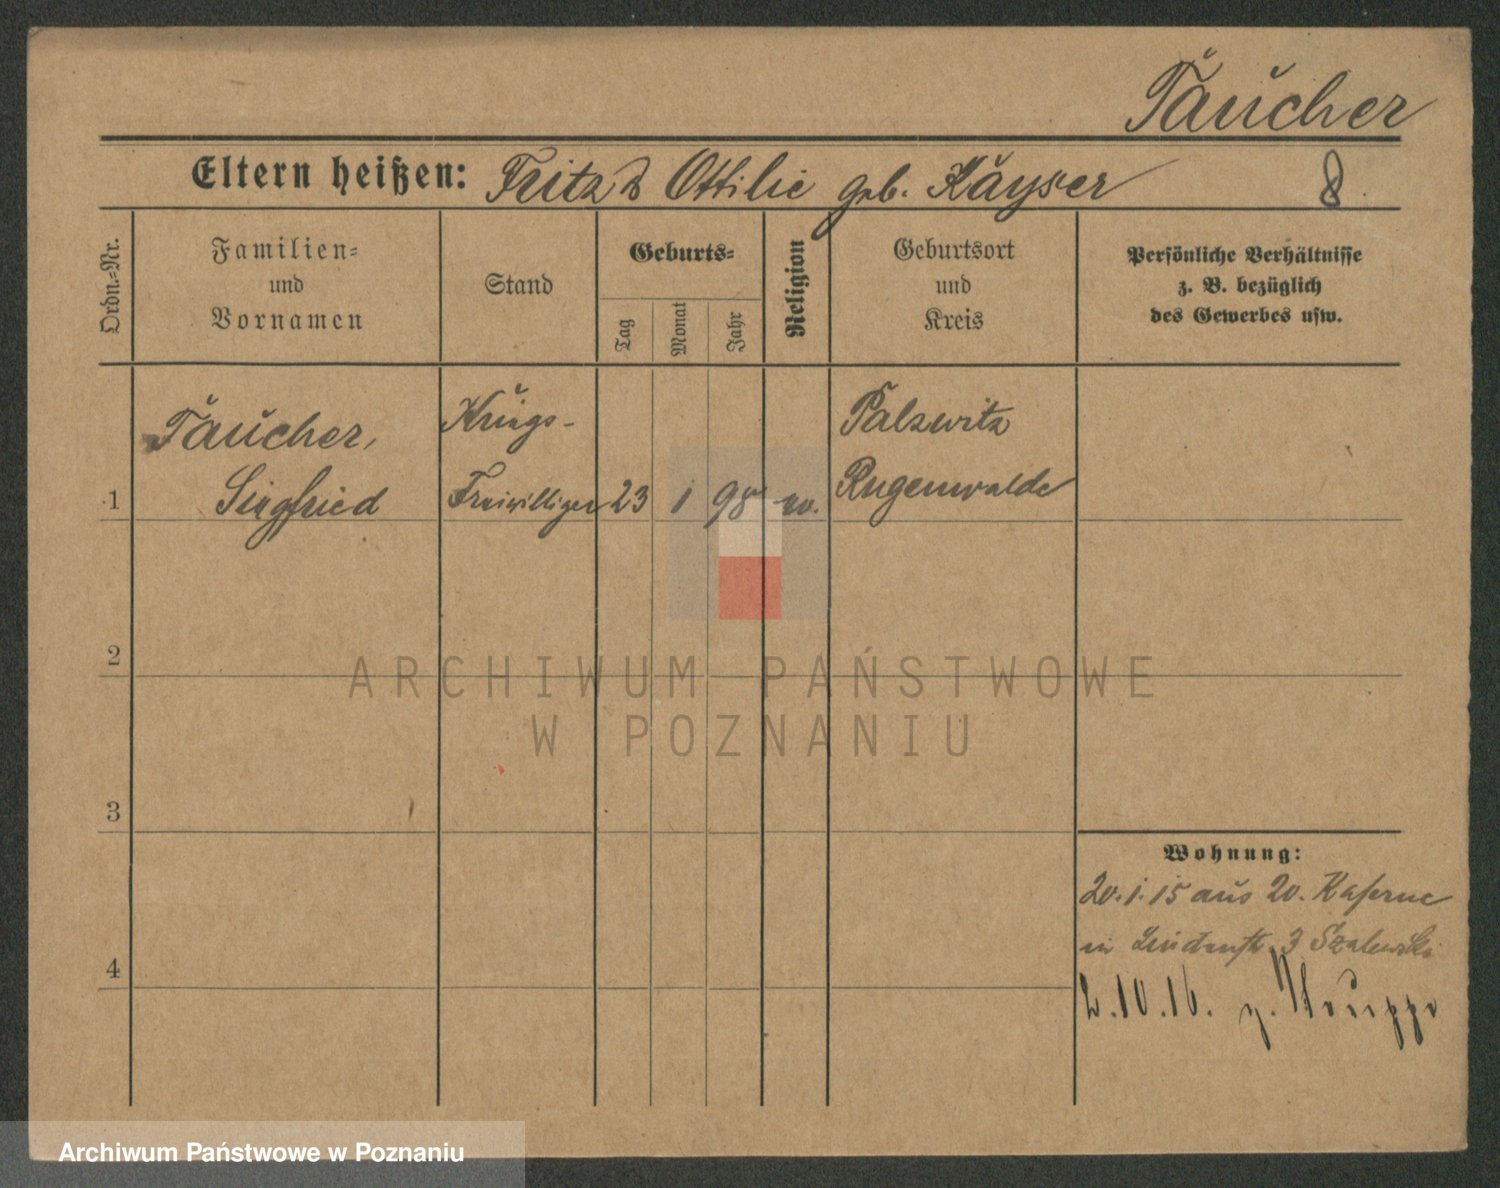 Täucher
Eltern heißen: Fritz & Ottilie geb. Käyser
8.
Ordn.-Nr.
Familien-
und
Vornamen
Stand
Geburts-
Tag
Monat
Jahr
Religion
Geburtsort
und
Kreis
Persönliche Verhältnisse
z. B. bezüglich
des Gewerbes usw.
1
Täucher,
Siegfried
Kriegs-
Freiwilliger
23
1
98
ev.
Palzwitz
Rugenwalde
2
3
4
Wohnung:
20.1.15 aus 20. Kaserne
in Lindenstr. 3 Szalewski
2.10.16. z. Truppe
ARCHIWUM PAŃSTWOWE
W POZNANIU
Archiwum Państwowe w Poznaniu